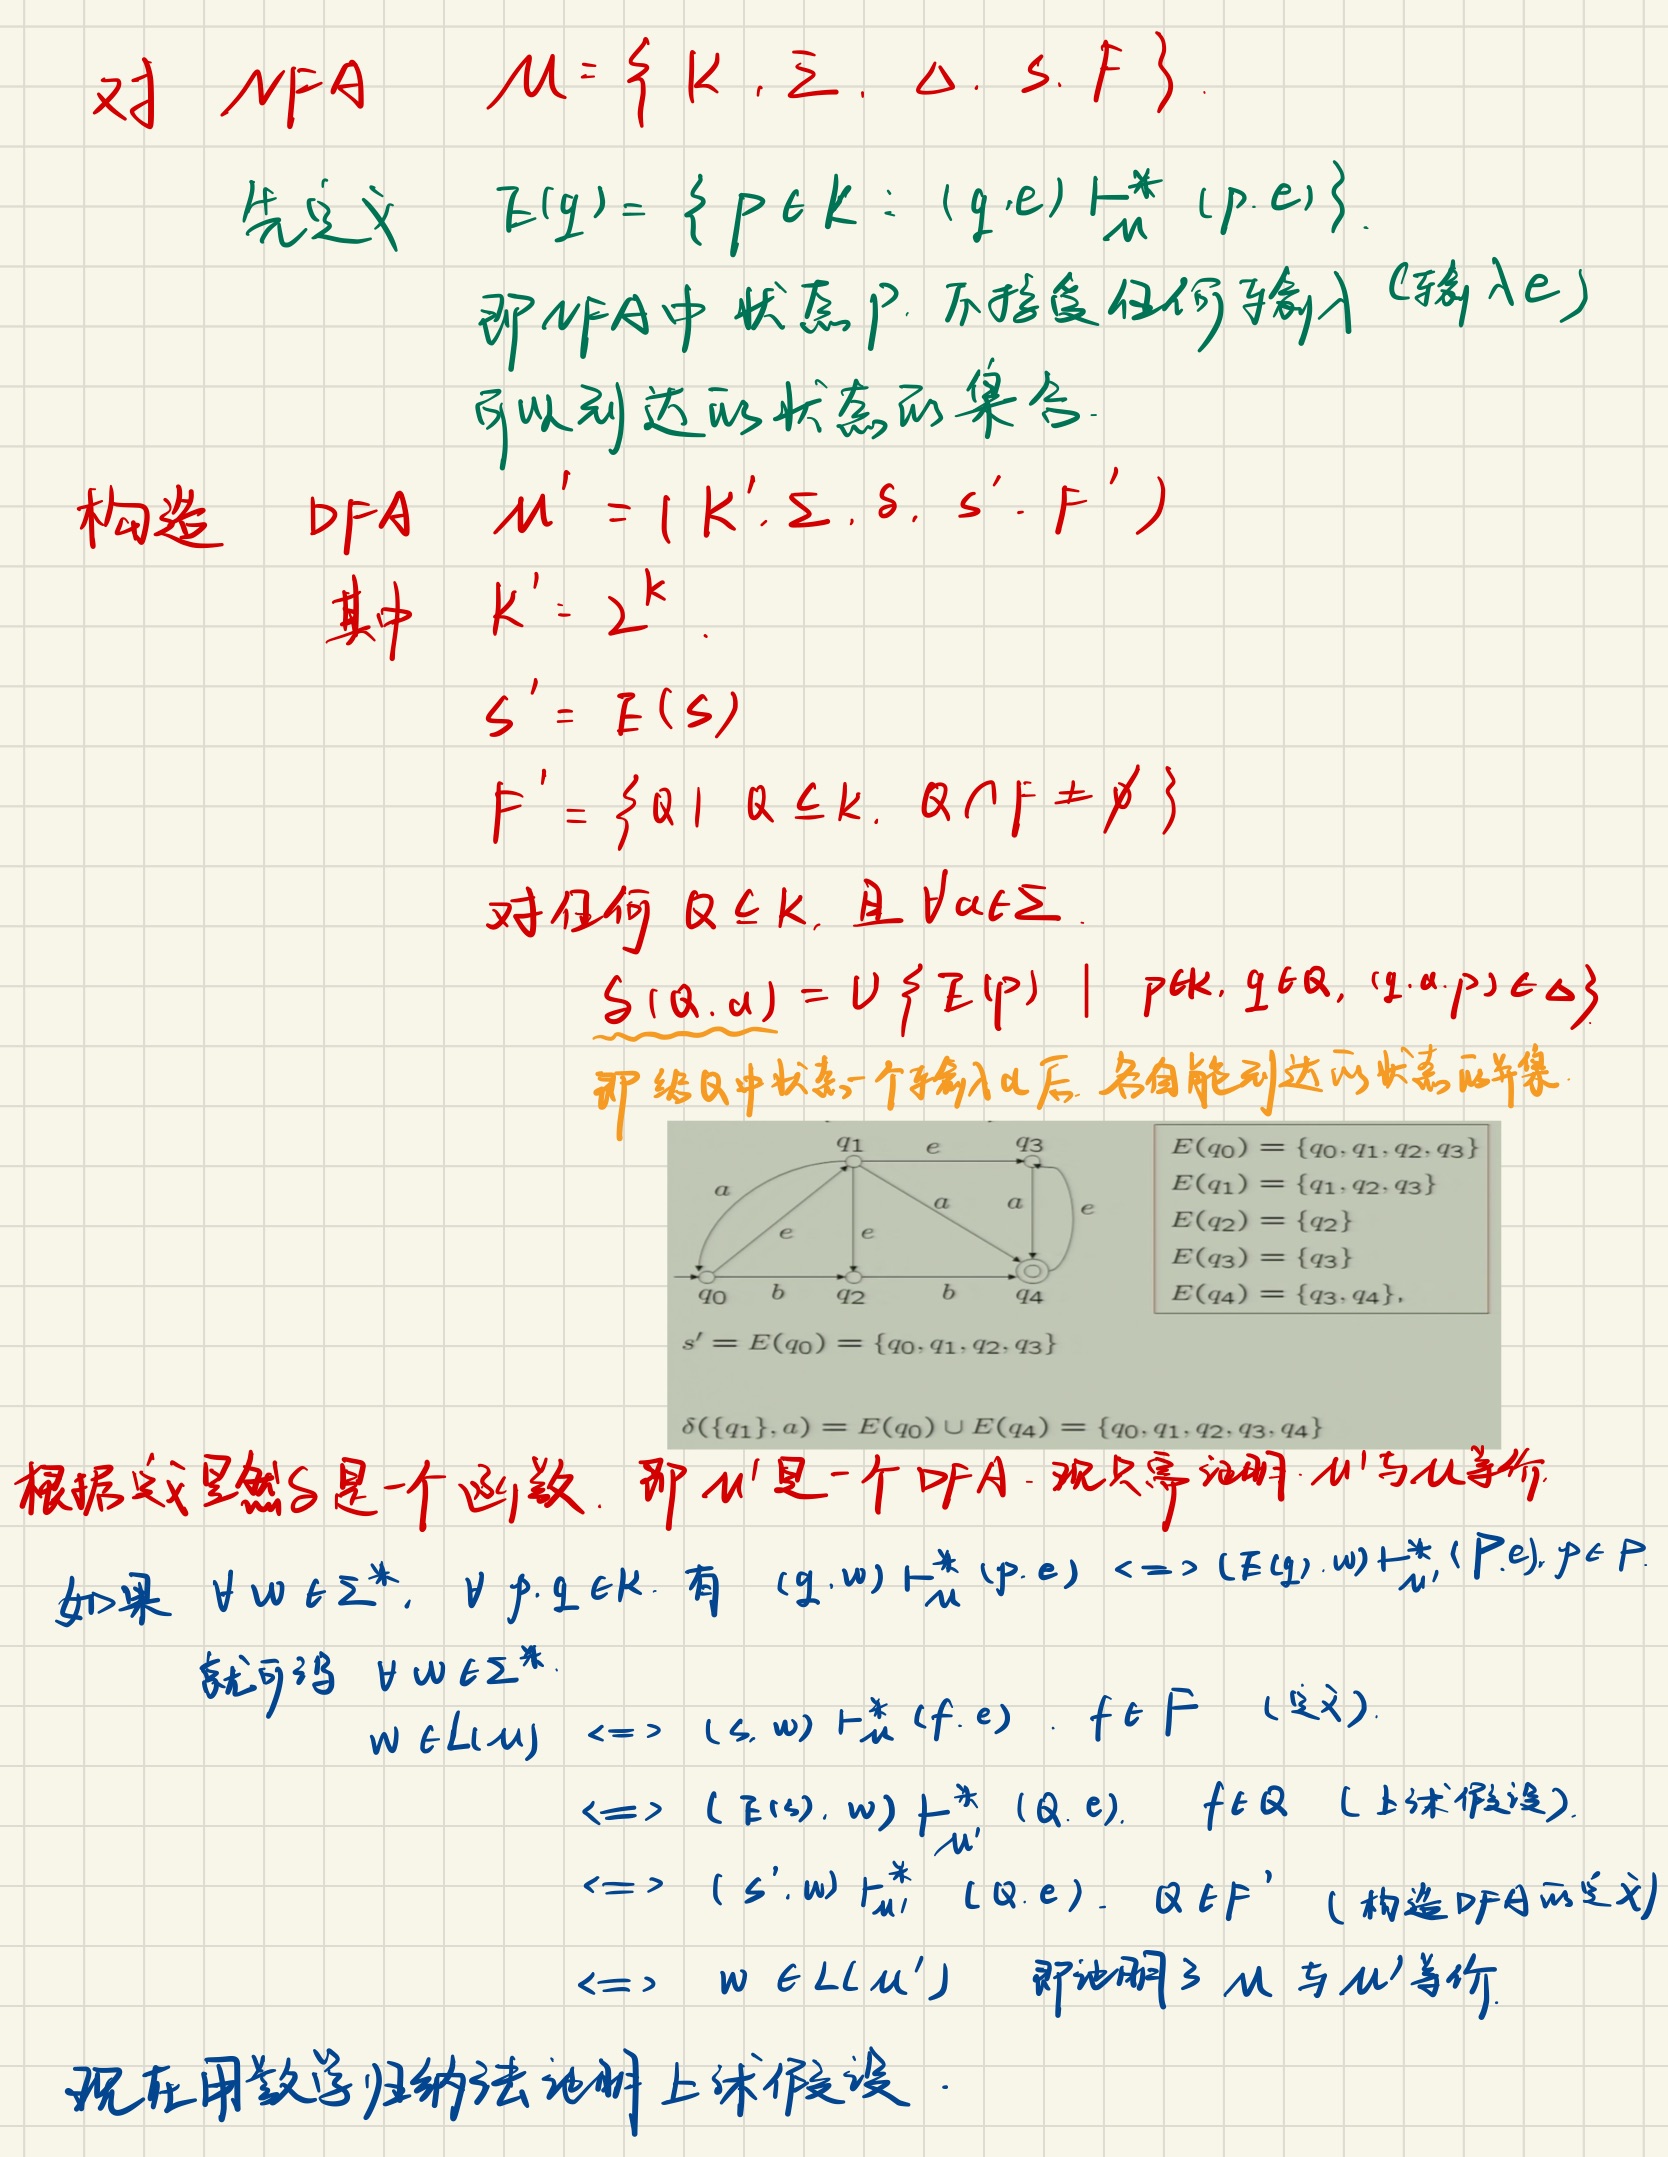 对 NFA M = { K, Σ, Δ, s, F }.
先定义 E(q) = { p ∈ K : (q,e) ⊢*_M (p.e) }.
即NFA中状态p. 不接受任何输入 (输入e)
可以到达的状态的集合.
构造 DFA M' = ( K'. Σ. δ. s'. F' )
其中 K' = 2^K.
s' = E(s)
F' = {Q | Q ⊆ K. Q ∩ F ≠ ∅ }
对任何 Q ⊆ K. 且 ∀a∈Σ.
δ(Q.a) = ∪ { E(p) | p∈K, q∈Q, (q.a.p) ∈ Δ}
即给Q中状态一个输入a后. 各自能到达的状态的并集.
q1 e q3
a e e a a e
q0 b q2 b q4
E(q0) = {q0, q1, q2, q3}
E(q1) = {q1, q2, q3}
E(q2) = {q2}
E(q3) = {q3}
E(q4) = {q3, q4},
s' = E(q0) = {q0, q1, q2, q3}
δ({q1}, a) = E(q0) ∪ E(q4) = {q0, q1, q2, q3, q4}
根据定义显然δ是一个函数. 即M'是一个DFA. 现只需证明. M'与M等价.
如果 ∀w∈Σ*, ∀p.q∈K. 有 (q.w) ⊢*_M (p.e) <=> (E(q).w) ⊢*_M' (P.e), p∈P.
就可得 ∀w∈Σ*.
w∈L(M) <=> (s.w) ⊢*_M (f.e). f∈F (定义).
<=> (E(s).w) ⊢*_M' (Q.e). f∈Q (上述假设).
<=> (s'.w) ⊢*_M' (Q.e). Q∈F' (构造DFA的定义)
<=> w∈L(M') 即证明了M与M'等价.
现在用数学归纳法证明上述假设.